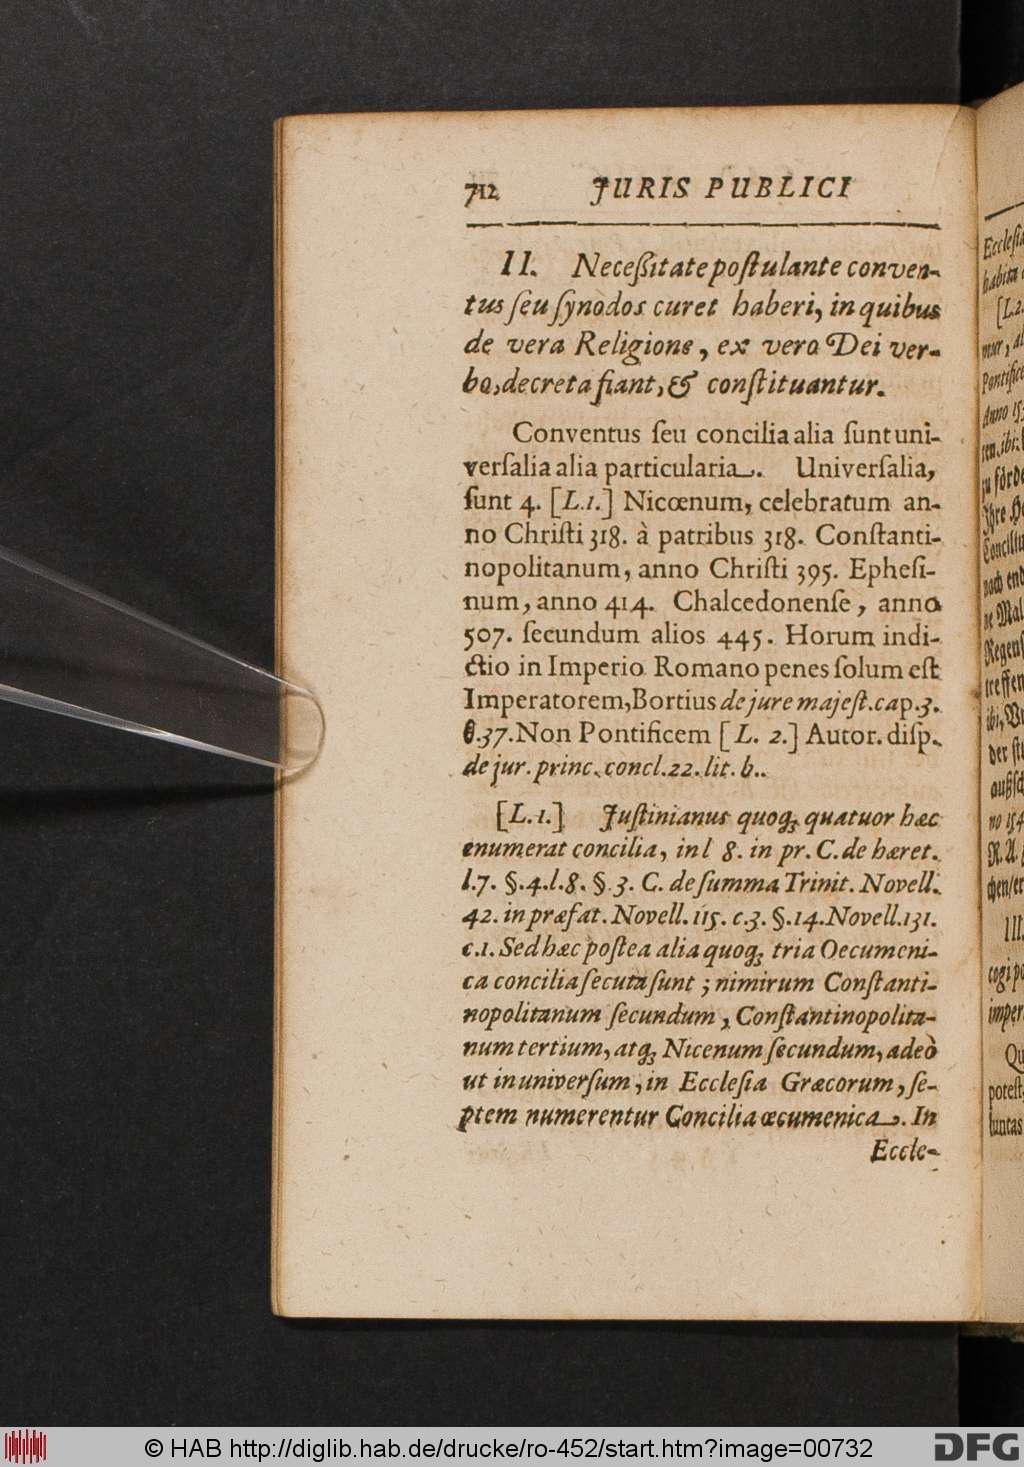 712 JURIS PUBLICI
II. Neceſſitate poſtulante conven-
tus ſeu ſynodos curet haberi, in quibus
de vera Religione, ex vero Dei ver-
bo, decreta fiant, & conſtituantur.
Conventus ſeu concilia alia ſunt uni-
verſalia alia particularia. Univerſalia,
ſunt 4. [L.1.] Nicœnum, celebratum an-
no Chriſti 318. à patribus 318. Conſtanti-
nopolitanum, anno Chriſti 395. Epheſi-
num, anno 414. Chalcedonenſe, anno
507. ſecundum alios 445. Horum indi-
ctio in Imperio Romano penes ſolum eſt
Imperatorem, Bortius de jure majeſt. cap. 3.
§. 37. Non Pontificem [L. 2.] Autor. diſp.
de jur. princ. concl. 22. lit. b..
[L.1.] Juſtinianus quoq; quatuor hæc
enumerat concilia, in l 8. in pr. C. de hæret.
l.7. §.4.l.8. § 3. C. de ſumma Trinit. Novell.
42. in præfat. Novell. 115. c.3. §.14. Novell. 131.
c.1. Sed hæc poſtea alia quoq; tria Oecumeni-
ca concilia ſecuta ſunt; nimirum Conſtanti-
nopolitanum ſecundum, Conſtantinopolita-
num tertium, atq; Nicenum ſecundum, adeò
ut in univerſum, in Eccleſia Græcorum, ſe-
ptem numerentur Concilia œcumenica. In
Eccle-
Eccleſia
habita
[L.2.
Pontific
Anno 15
ten. ibi:
zu förde
Ihre
Conciliu
nach end
ne Mal
Regenſ
treffen
der
no 154
R.A.
chen/er
III.
cogi po
imper
Qu
poteſt,
luntas
© HAB http://diglib.hab.de/drucke/ro-452/start.htm?image=00732
DFG